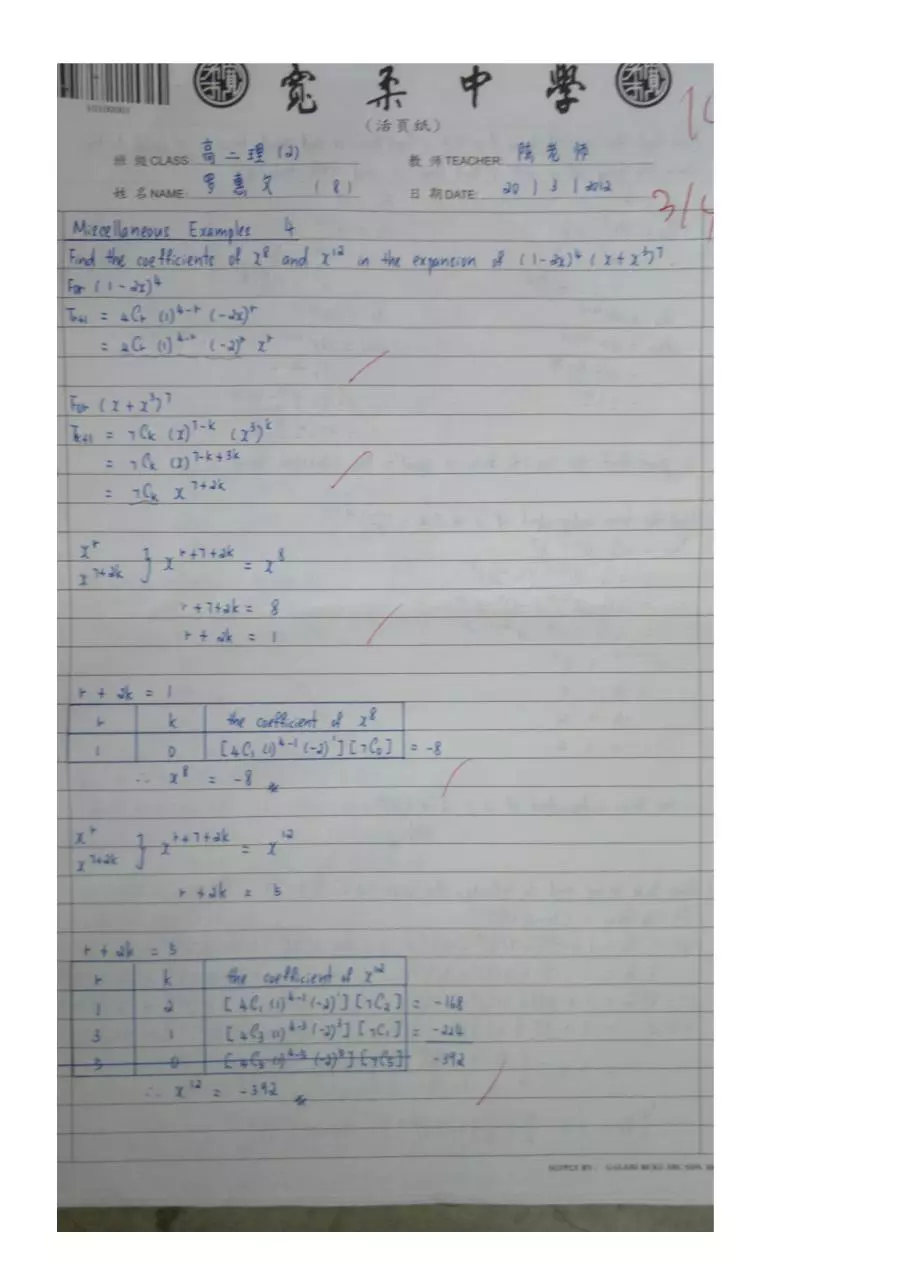 10100001
寬柔中學
(活頁紙)
10
班級CLASS: 高二理(2) 教師TEACHER: 陈老师
姓名NAME: 罗惠文 (8) 日期DATE: 20 | 3 | 2012
3/4
Miscellaneous Examples 4
Find the coefficients of x^8 and x^12 in the expansion of (1-2x)^4 (x+x^3)^7.
For (1-2x)^4
T_{r+1} = 4Cr (1)^{4-r} (-2x)^r
= 4Cr (1)^{4-r} (-2)^r x^r
For (x+x^3)^7
T_{k+1} = 7Ck (x)^{7-k} (x^3)^k
= 7Ck (x)^{7-k+3k}
= 7Ck x^{7+2k}
x^r
x^{7+2k} } x^{r+7+2k} = x^8
r+7+2k = 8
r + 2k = 1
r + 2k = 1
r k the coefficient of x^8
1 0 [4C1 (1)^{4-1} (-2)^1][7C0] = -8
∴ x^8 = -8
x^r
x^{7+2k} } x^{r+7+2k} = x^12
r + 2k = 5
r + 2k = 5
r k the coefficient of x^12
1 2 [4C1 (1)^{4-1} (-2)^1][7C2] = -168
3 1 [4C3 (1)^{4-3} (-2)^3][7C1] = -224
5 0 -392
∴ x^12 = -392